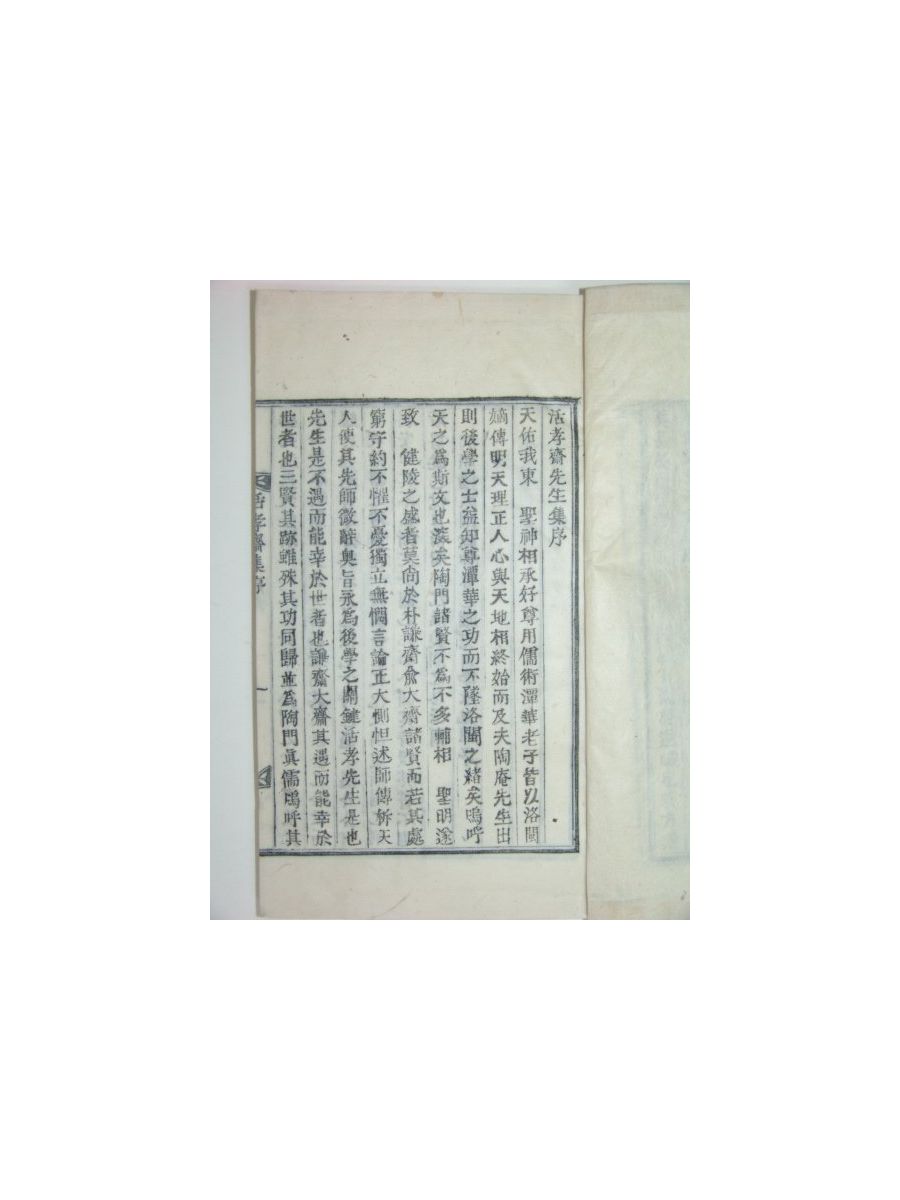 活孝齋先生集序
天佑我東　聖神相承好尊用儒術潭華老子皆以洛閩
嫡傳明天理正人心與天地相終始而及夫陶庵先生出
則後學之士益知尊潭華之功而不墜洛閩之緖矣嗚呼
天之爲斯文也深矣陶門諸賢不爲不多輔相　聖明途
致　健陵之盛者莫尙於朴謙齋兪大齋諸賢而若其處
窮守約不懼不憂獨立無憫言論正大惻怛述師傳斬天
人使其先師微辭奧旨永爲後學之關鍵活孝先生是也
先生是不遇而能幸於世者也謙齋大齋其遇而能幸於
世者也三賢其跡雖殊其功同歸並爲陶門眞儒嗚呼其
活孝齋集序
一